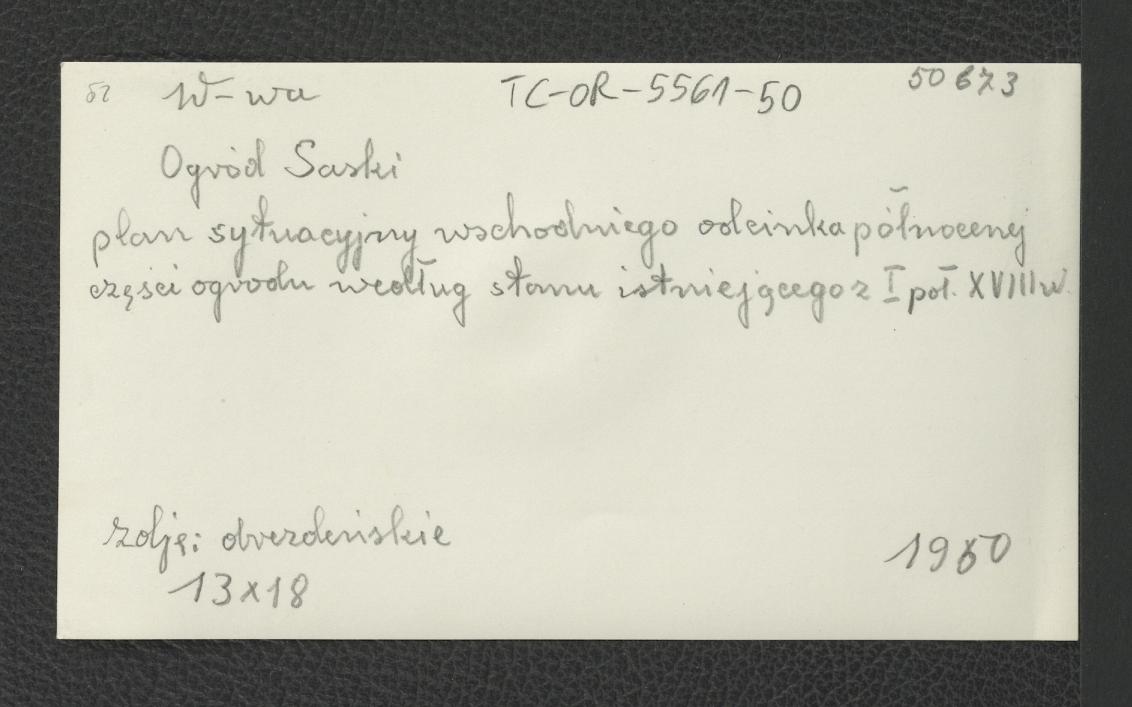 W-wa TC-OR-5561-50 50673
Ogród Saski
plan sytuacyjny wschodniego odcinka północnej
części ogrodu według stanu istniejącego z I poł. XVIII w.
zdję: drezdeńskie 1960
13x18